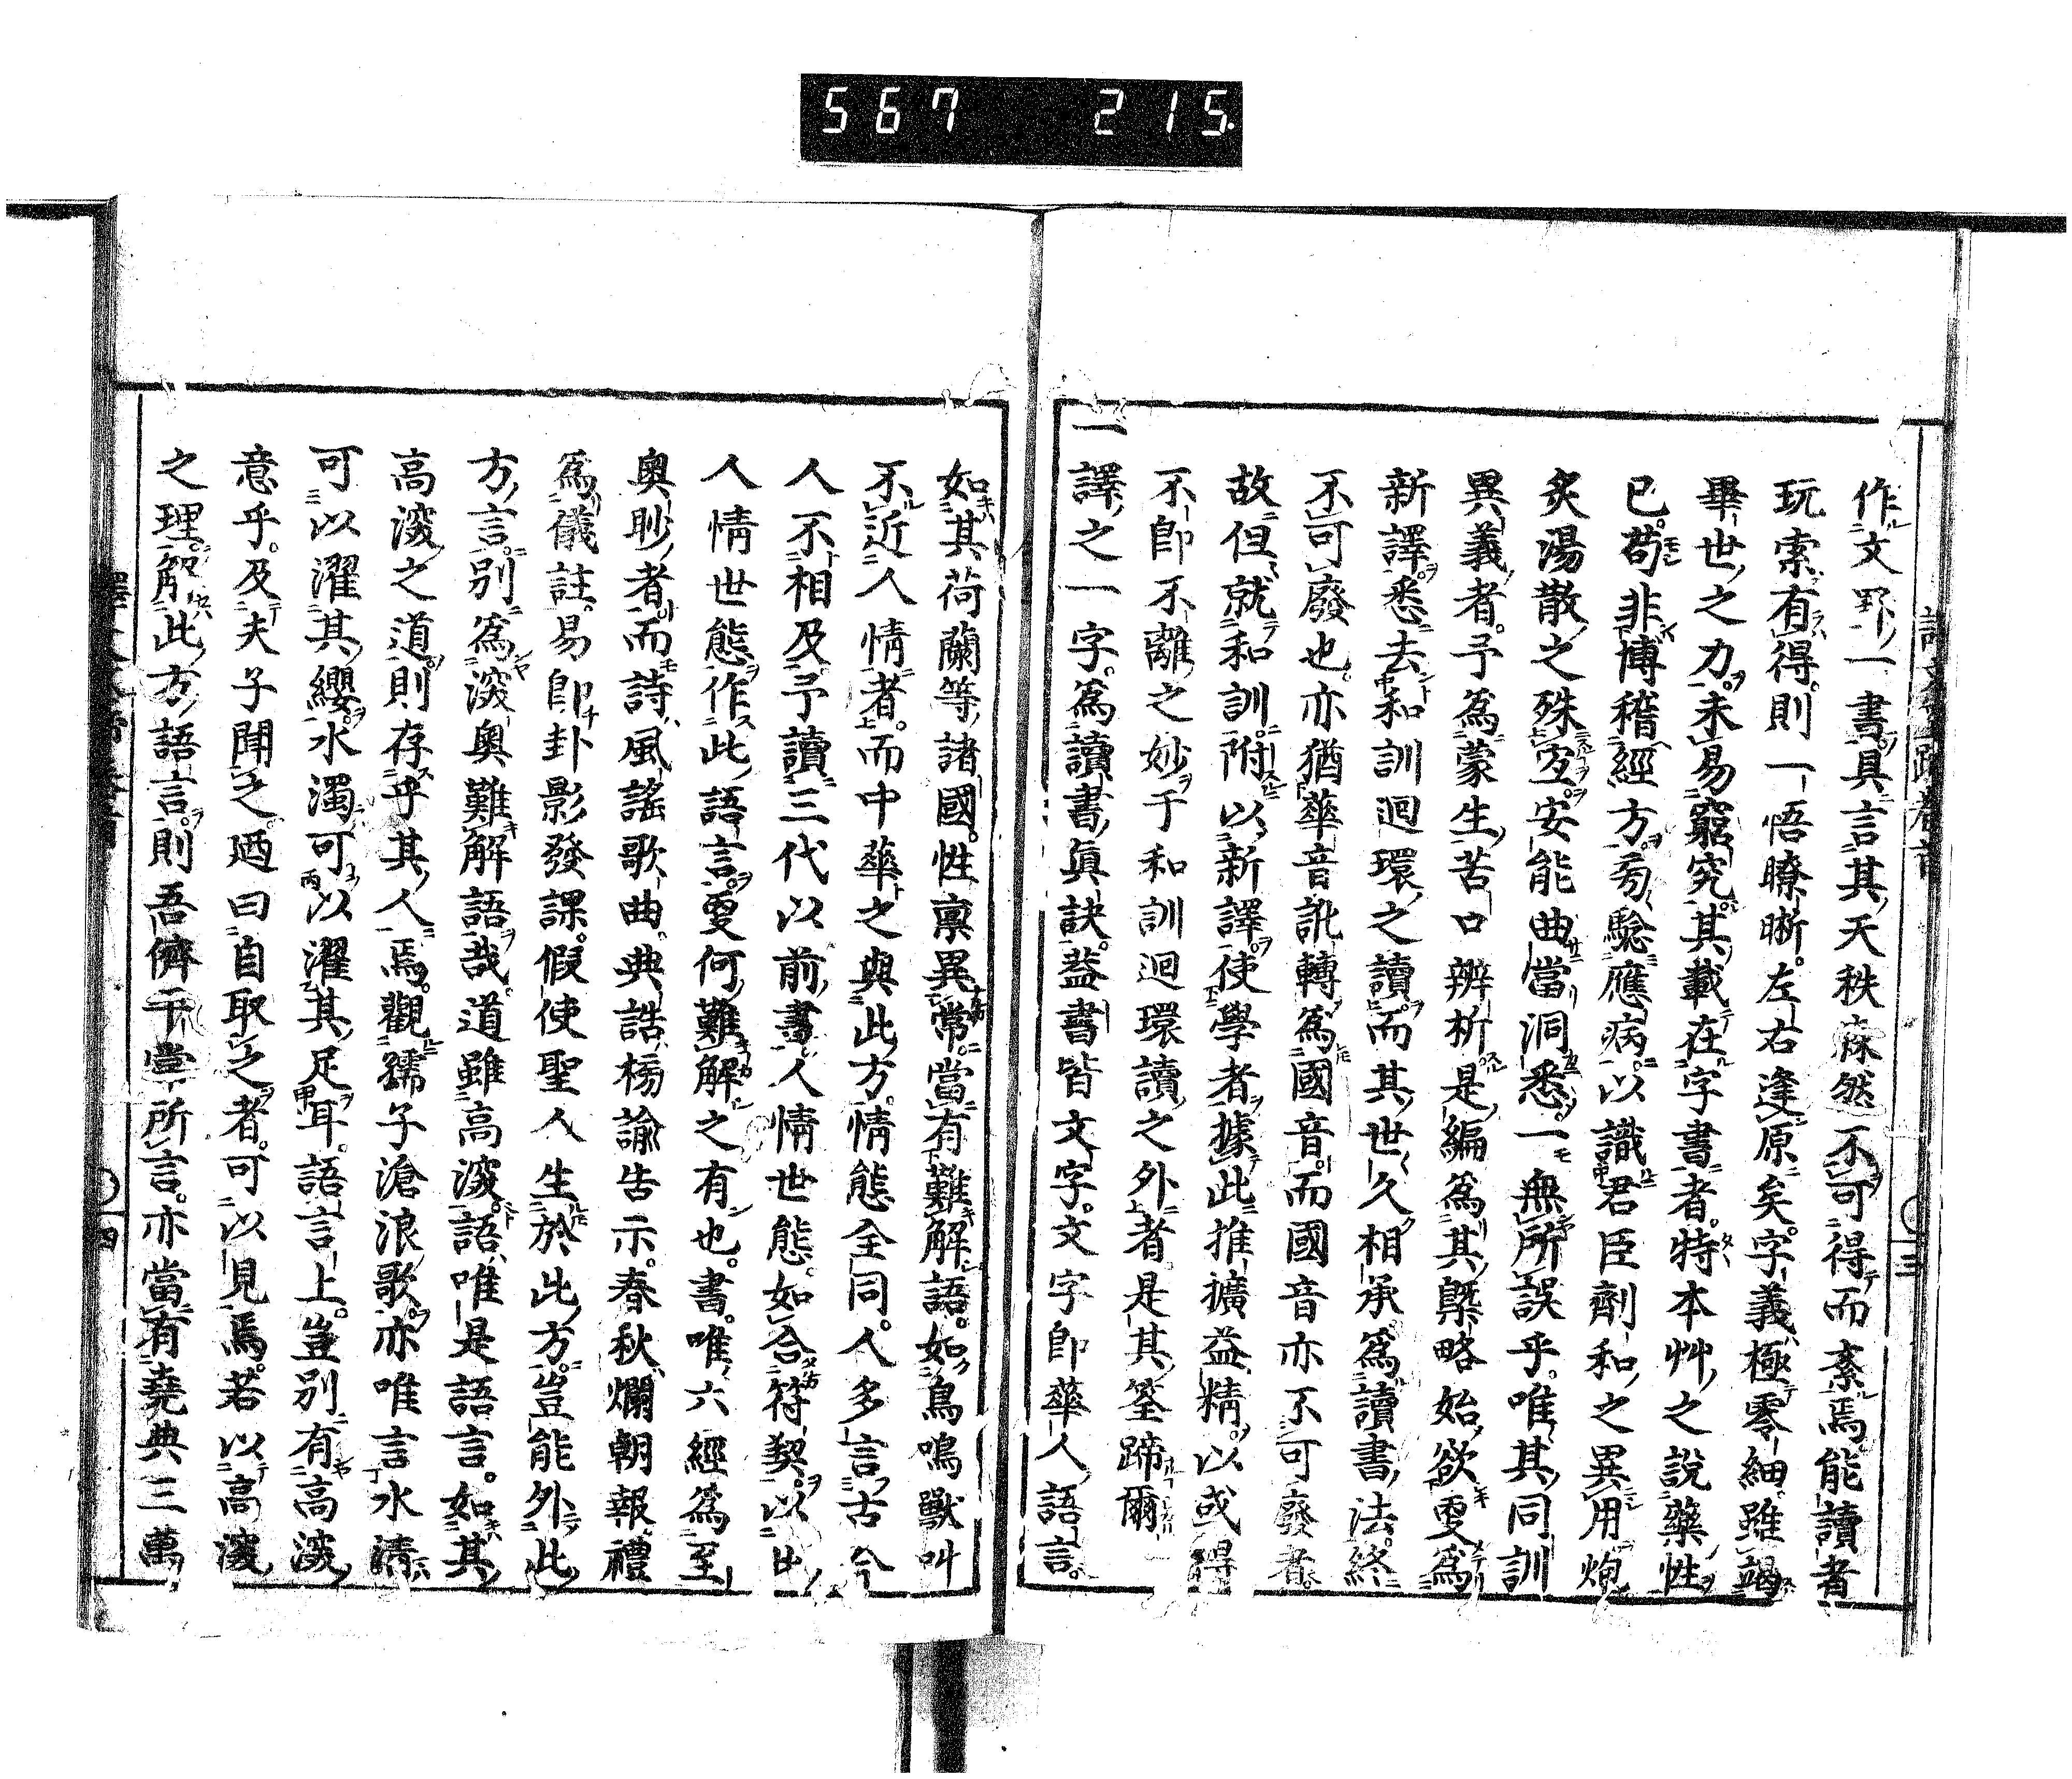 567 215
作文野一書具言其天秩森然不可得而紊焉能讀者
玩索有得則一悟瞭晣左右逢原矣字義極零細雖竭
畢世之力未易窮究其載在字書者特本艸之說藥性
已苟非博稽經方旁驗應病以識君臣劑和之異用炮
炙湯散之殊宜安能曲當洞悉一無所誤乎唯其同訓
異義者予為蒙生苦口辨析是編為其槩略始欲更為
新譯悉去和訓迴環之讀而其世久相承為讀書法終
不可廢也亦猶華音訛轉為國音而國音亦不可廢者
故但就和訓附以新譯使學者據此推擴益精以或得
不卽不離之妙于和訓迴環讀之外者是其筌蹄爾
一譯之一字為讀書眞訣葢書皆文字文字卽華人語言
如其荷蘭等諸國性稟異常當有難解語如鳥鳴獸叫
不近人情者而中華之與此方情態全同人多言古今
人不相及予讀三代以前書人情世態如合符契以此
人情世態作此語言更何難解之有也書唯六經為至
奧眇者而詩風謠歌曲典誥榜諭告示春秋爛朝報禮
為儀註易卽卦影發課假使聖人生於此方豈能外此
方言別為深奧難解語哉道雖高深語唯是語言如其
高深之道則存乎其人焉觀孺子滄浪歌亦唯言水清
可以濯其纓水濁可以濯其足耳語言上豈別有高深
意乎及夫子聞之廼曰自取之者可以見焉若以高深
之理解此方語言則吾儕平常所言亦當有堯典三萬